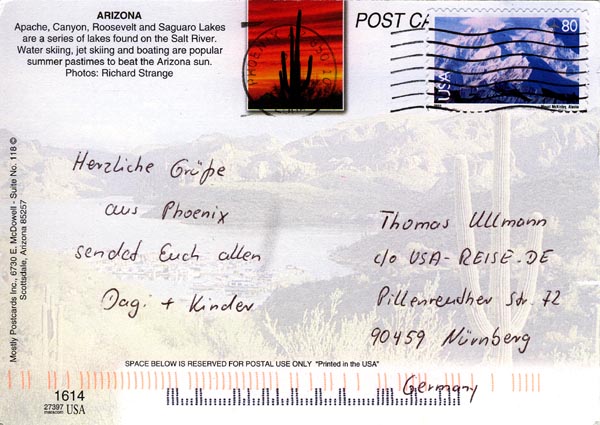 ARIZONA
Apache, Canyon, Roosevelt and Saguaro Lakes
are a series of lakes found on the Salt River.
Water skiing, jet skiing and boating are popular
summer pastimes to beat the Arizona sun.
Photos: Richard Strange
POST
80
USA
Mount McKinley, Alaska
Mostly Postcards Inc., 6730 E. McDowell - Suite No. 118 ©
Scottsdale, Arizona 85257
Herzliche Grüße
aus Phoenix
sendet Euch allen
Dagi + Kinder
Thomas Ullmann
c/o USA-REISE.DE
Pillenreuther Str. 72
90459 Nürnberg
Germany
SPACE BELOW IS RESERVED FOR POSTAL USE ONLY "Printed in the USA"
1614
27397
USA